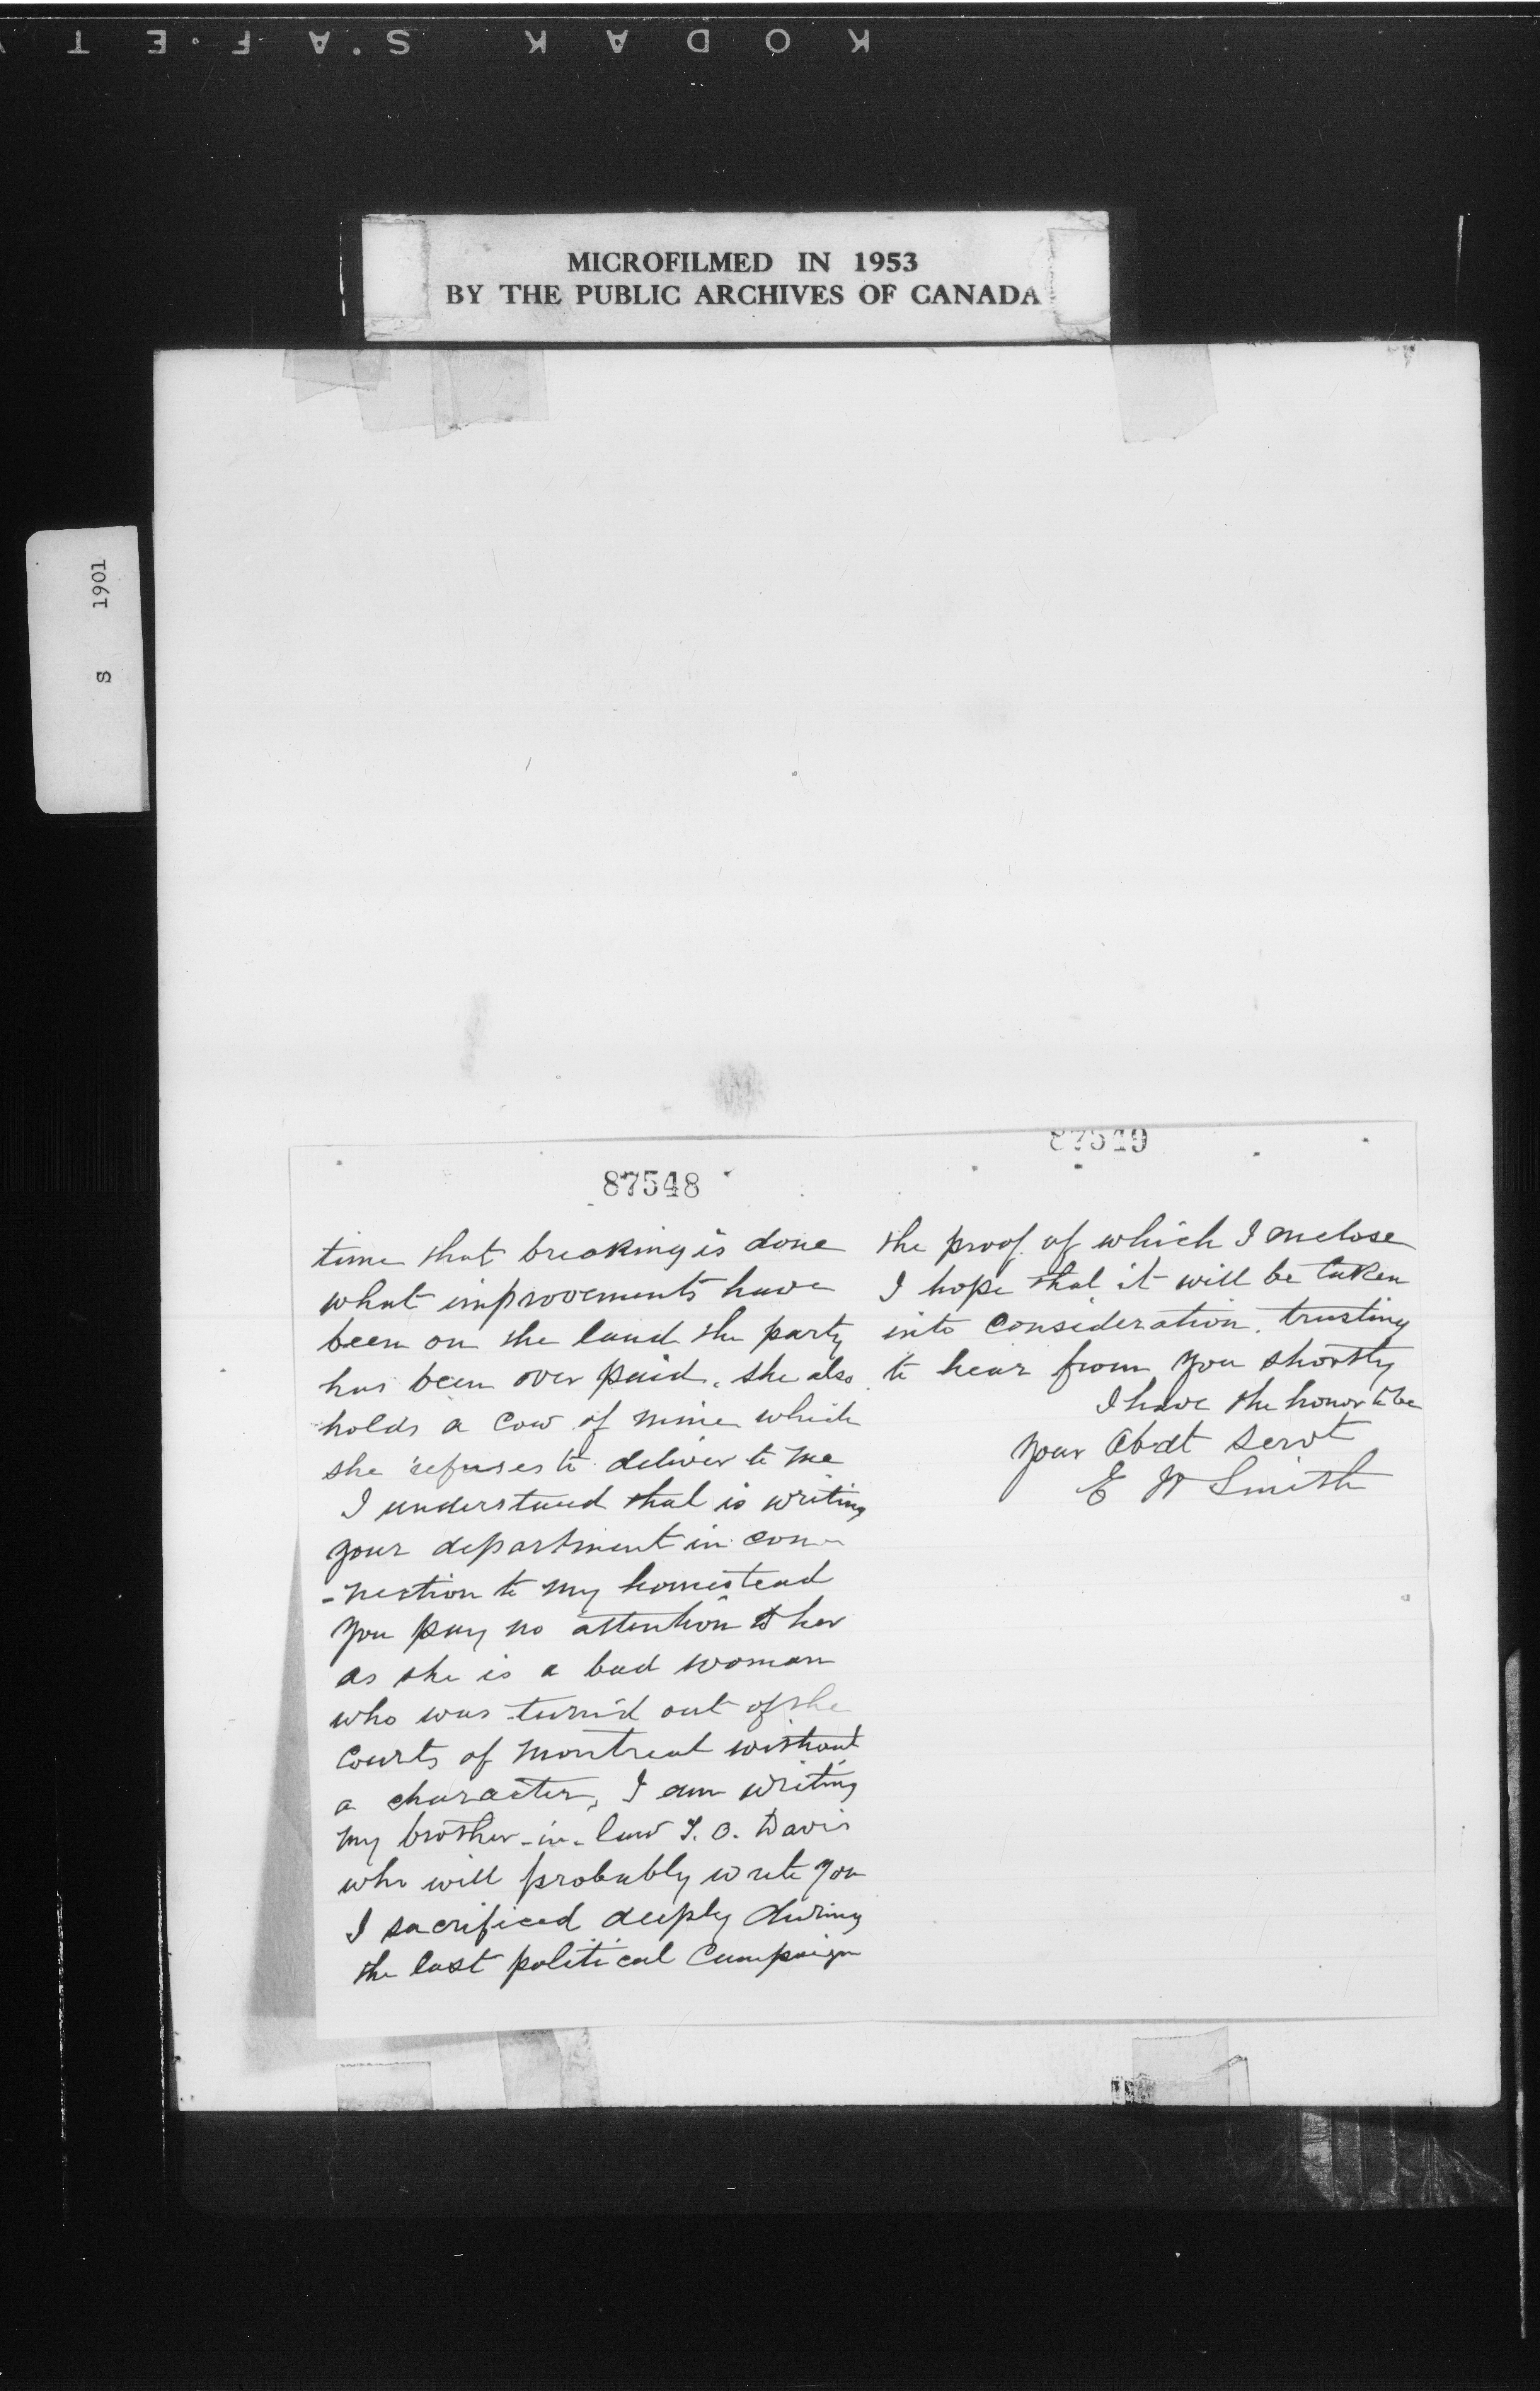 KODAK S.A.F.E.T
MICROFILMED IN 1953
BY THE PUBLIC ARCHIVES OF CANADA
S 1901
87548
time that breaking is done
what improvements have
been on the land the party
has been over paid. she also
holds a cow of mine which
she refuses to deliver to me
I understand that is writing
your department in con-
-nection to my homestead
you pay no attention to her
as she is a bad woman
who was turn'd out of the
Courts of Montreal without
a character, I am writing
my brother-in-law T. O. Davis
who will probably write you
I sacrificed deeply during
the last political Campaign
87549
the proof of which I enclose
I hope that it will be taken
into consideration. trusting
to hear from you shortly
I have the honor to be
your Obdt Servt
E W Smith